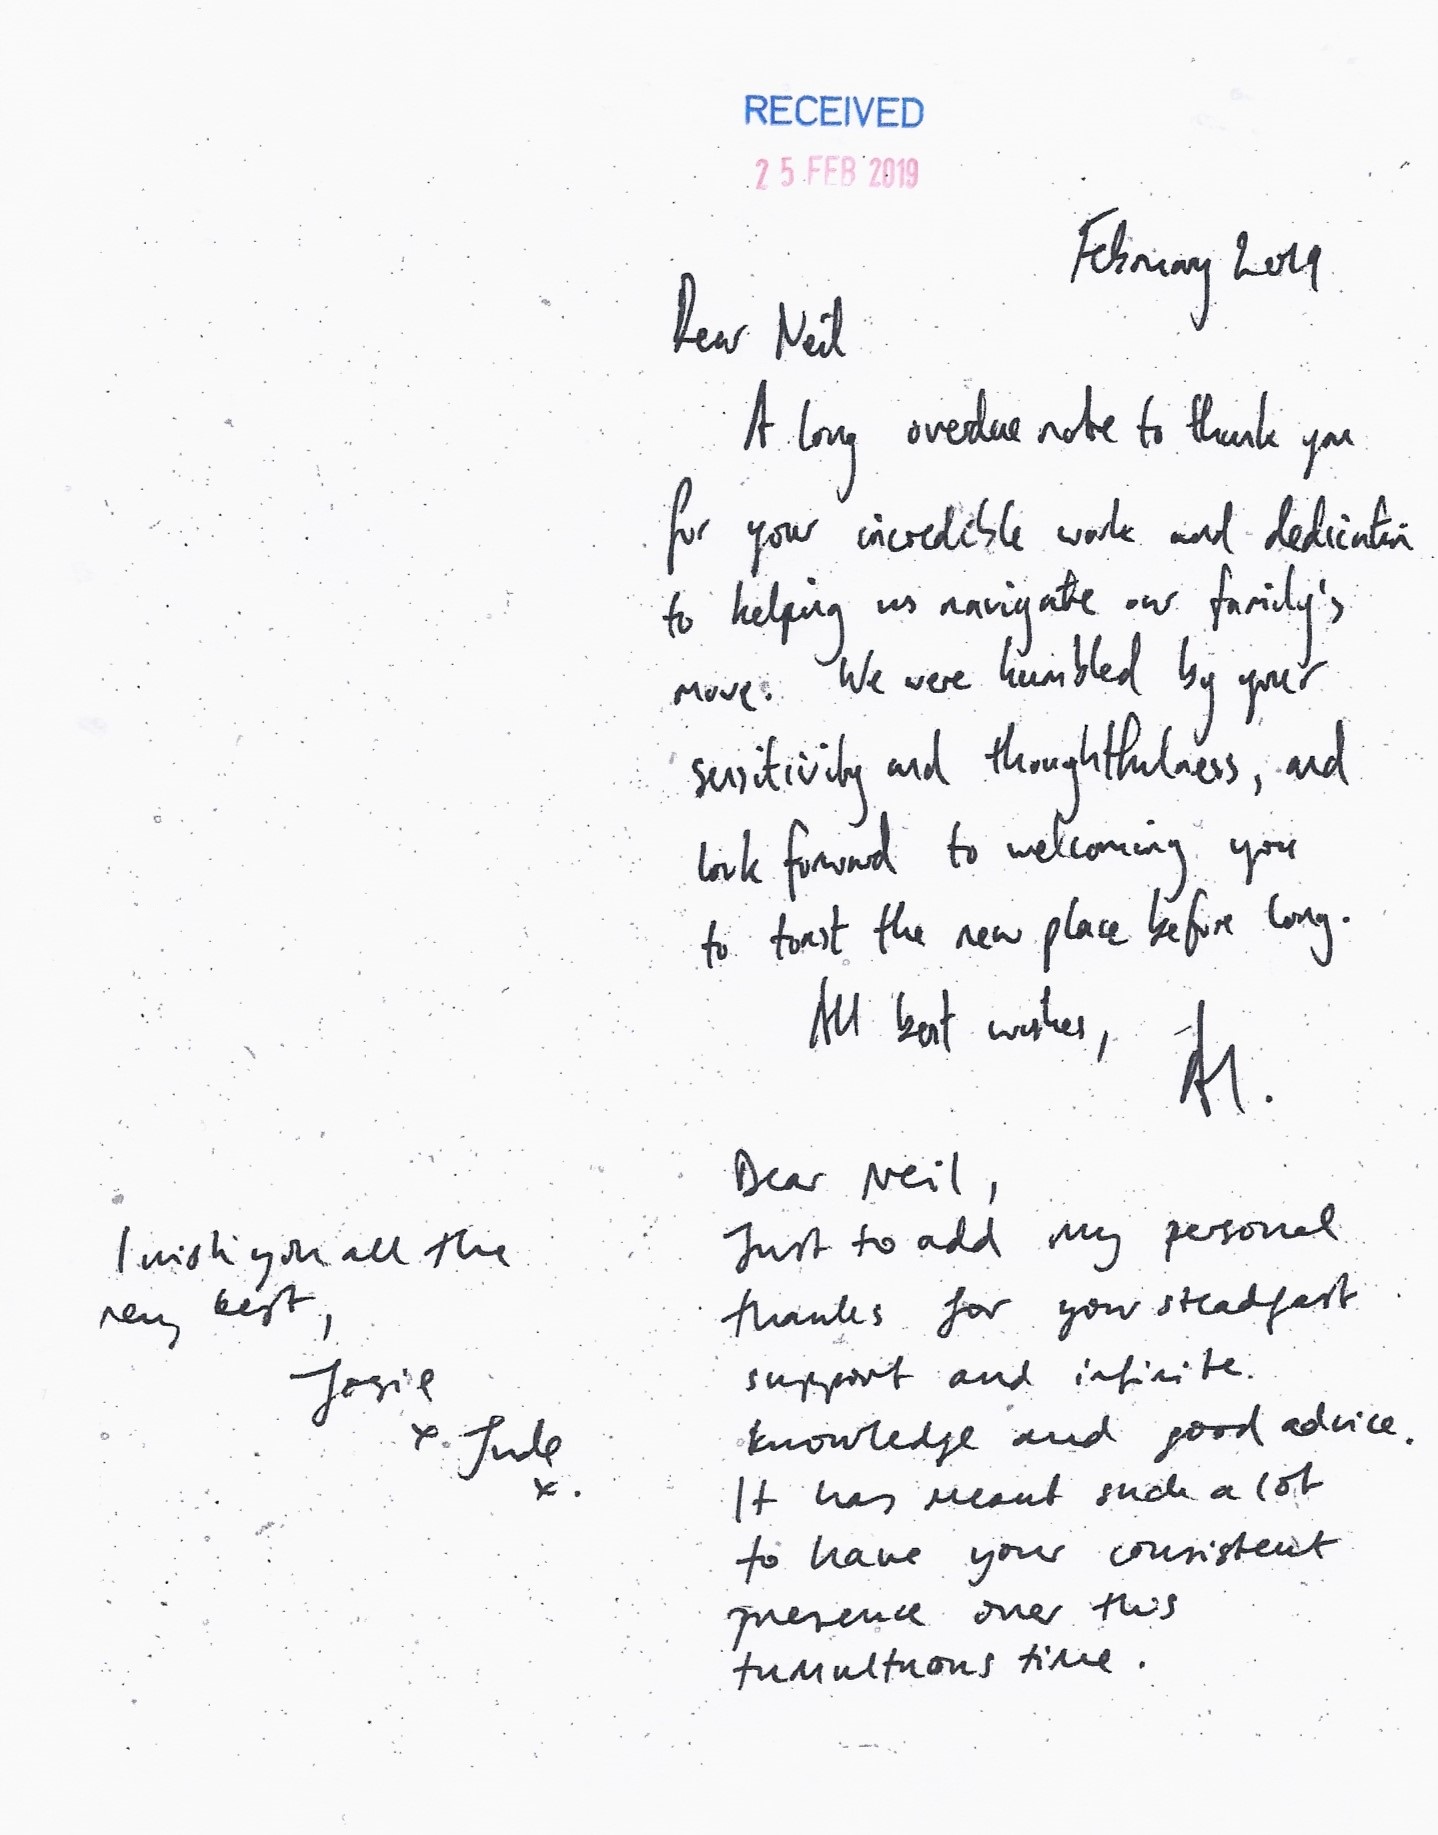 RECEIVED
25 FEB 2019
February 2019
Dear Neil
A long overdue note to thank you
for your incredible work and dedication
to helping us navigate our family's
move. We were humbled by your
sensitivity and thoughtfulness, and
look forward to welcoming you
to toast the new place before long.
All best wishes, Al.
Dear Neil,
Just to add my personal
thanks for your steadfast
support and infinite
knowledge and good advice.
It has meant such a lot
to have your consistent
presence over this
tumultuous time.
I wish you all the
very best,
Josie
x Jude
x.